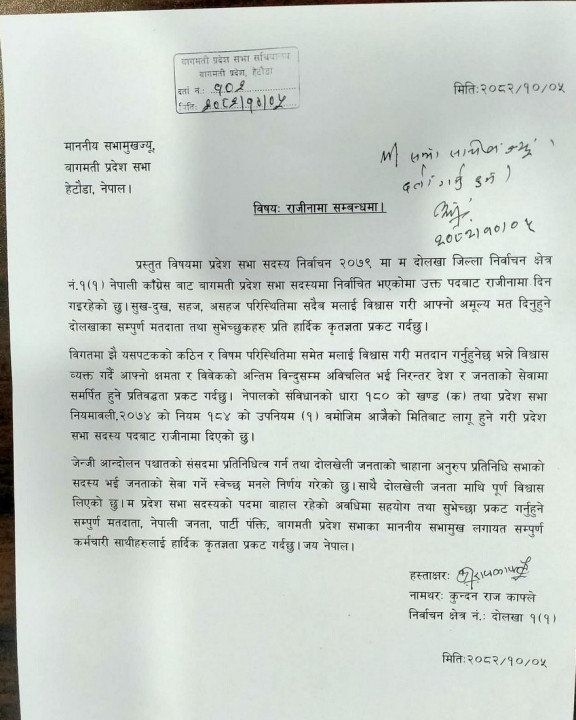 बागमती प्रदेश सभा सचिवालय
बागमती प्रदेश, हेटौडा
दर्ता नं.: ९०२
मिति: २०८२/१०/०५
मिति:२०८२/१०/०५
माननीय सभामुखज्यू,
बागमती प्रदेश सभा
हेटौडा, नेपाल।
दर्ता गर्नु हुन।
२०८२/१०/०५
विषय: राजीनामा सम्बन्धमा।
प्रस्तुत विषयमा प्रदेश सभा सदस्य निर्वाचन २०७९ मा म दोलखा जिल्ला निर्वाचन क्षेत्र
नं.१(१) नेपाली काँग्रेस बाट बागमती प्रदेश सभा सदस्यमा निर्वाचित भएकोमा उक्त पदबाट राजीनामा दिन
गइरहेको छु। सुख-दुख, सहज, असहज परिस्थितिमा सदैव मलाई विश्वास गरी आफ्नो अमूल्य मत दिनुहुने
दोलखाका सम्पुर्ण मतदाता तथा सुभेच्छुकहरु प्रति हार्दिक कृतज्ञता प्रकट गर्दछु।
विगतमा झै यसपटकको कठिन र विषम परिस्थितिमा समेत मलाई विश्वास गरी मतदान गर्नुहुनेछ भन्ने विश्वास
व्यक्त गर्दै आफ्नो क्षमता र विवेकको अन्तिम बिन्दुसम्म अविचलित भई निरन्तर देश र जनताको सेवामा
समर्पित हुने प्रतिबद्धता प्रकट गर्दछु। नेपालको संविधानको धारा १८० को खण्ड (क) तथा प्रदेश सभा
नियमावली,२०७४ को नियम १८४ को उपनियम (१) बमोजिम आजैको मितिबाट लागू हुने गरी प्रदेश
सभा सदस्य पदबाट राजीनामा दिएको छु।
जेन्जी आन्दोलन पश्चातको संसदमा प्रतिनिधित्व गर्न तथा दोलखेली जनताको चाहाना अनुरुप प्रतिनिधि सभाको
सदस्य भई जनताको सेवा गर्ने स्वेच्छ मनले निर्णय गरेको छु। साथै दोलखेली जनता माथि पूर्ण विश्वास
लिएको छु। म प्रदेश सभा सदस्यको पदमा बाहाल रहेको अवधिमा सहयोग तथा सुभेच्छा प्रकट गर्नुहुने
सम्पुर्ण मतदाता, नेपाली जनता, पार्टी पंक्ति, बागमती प्रदेश सभाका माननीय सभामुख लगायत सम्पुर्ण
कर्मचारी साथीहरुलाई हार्दिक कृतज्ञता प्रकट गर्दछु। जय नेपाल।
हस्ताक्षर:
नामथर: कुन्दन राज काफ्ले
निर्वाचन क्षेत्र नं.: दोलखा १(१)
मिति:२०८२/१०/०५